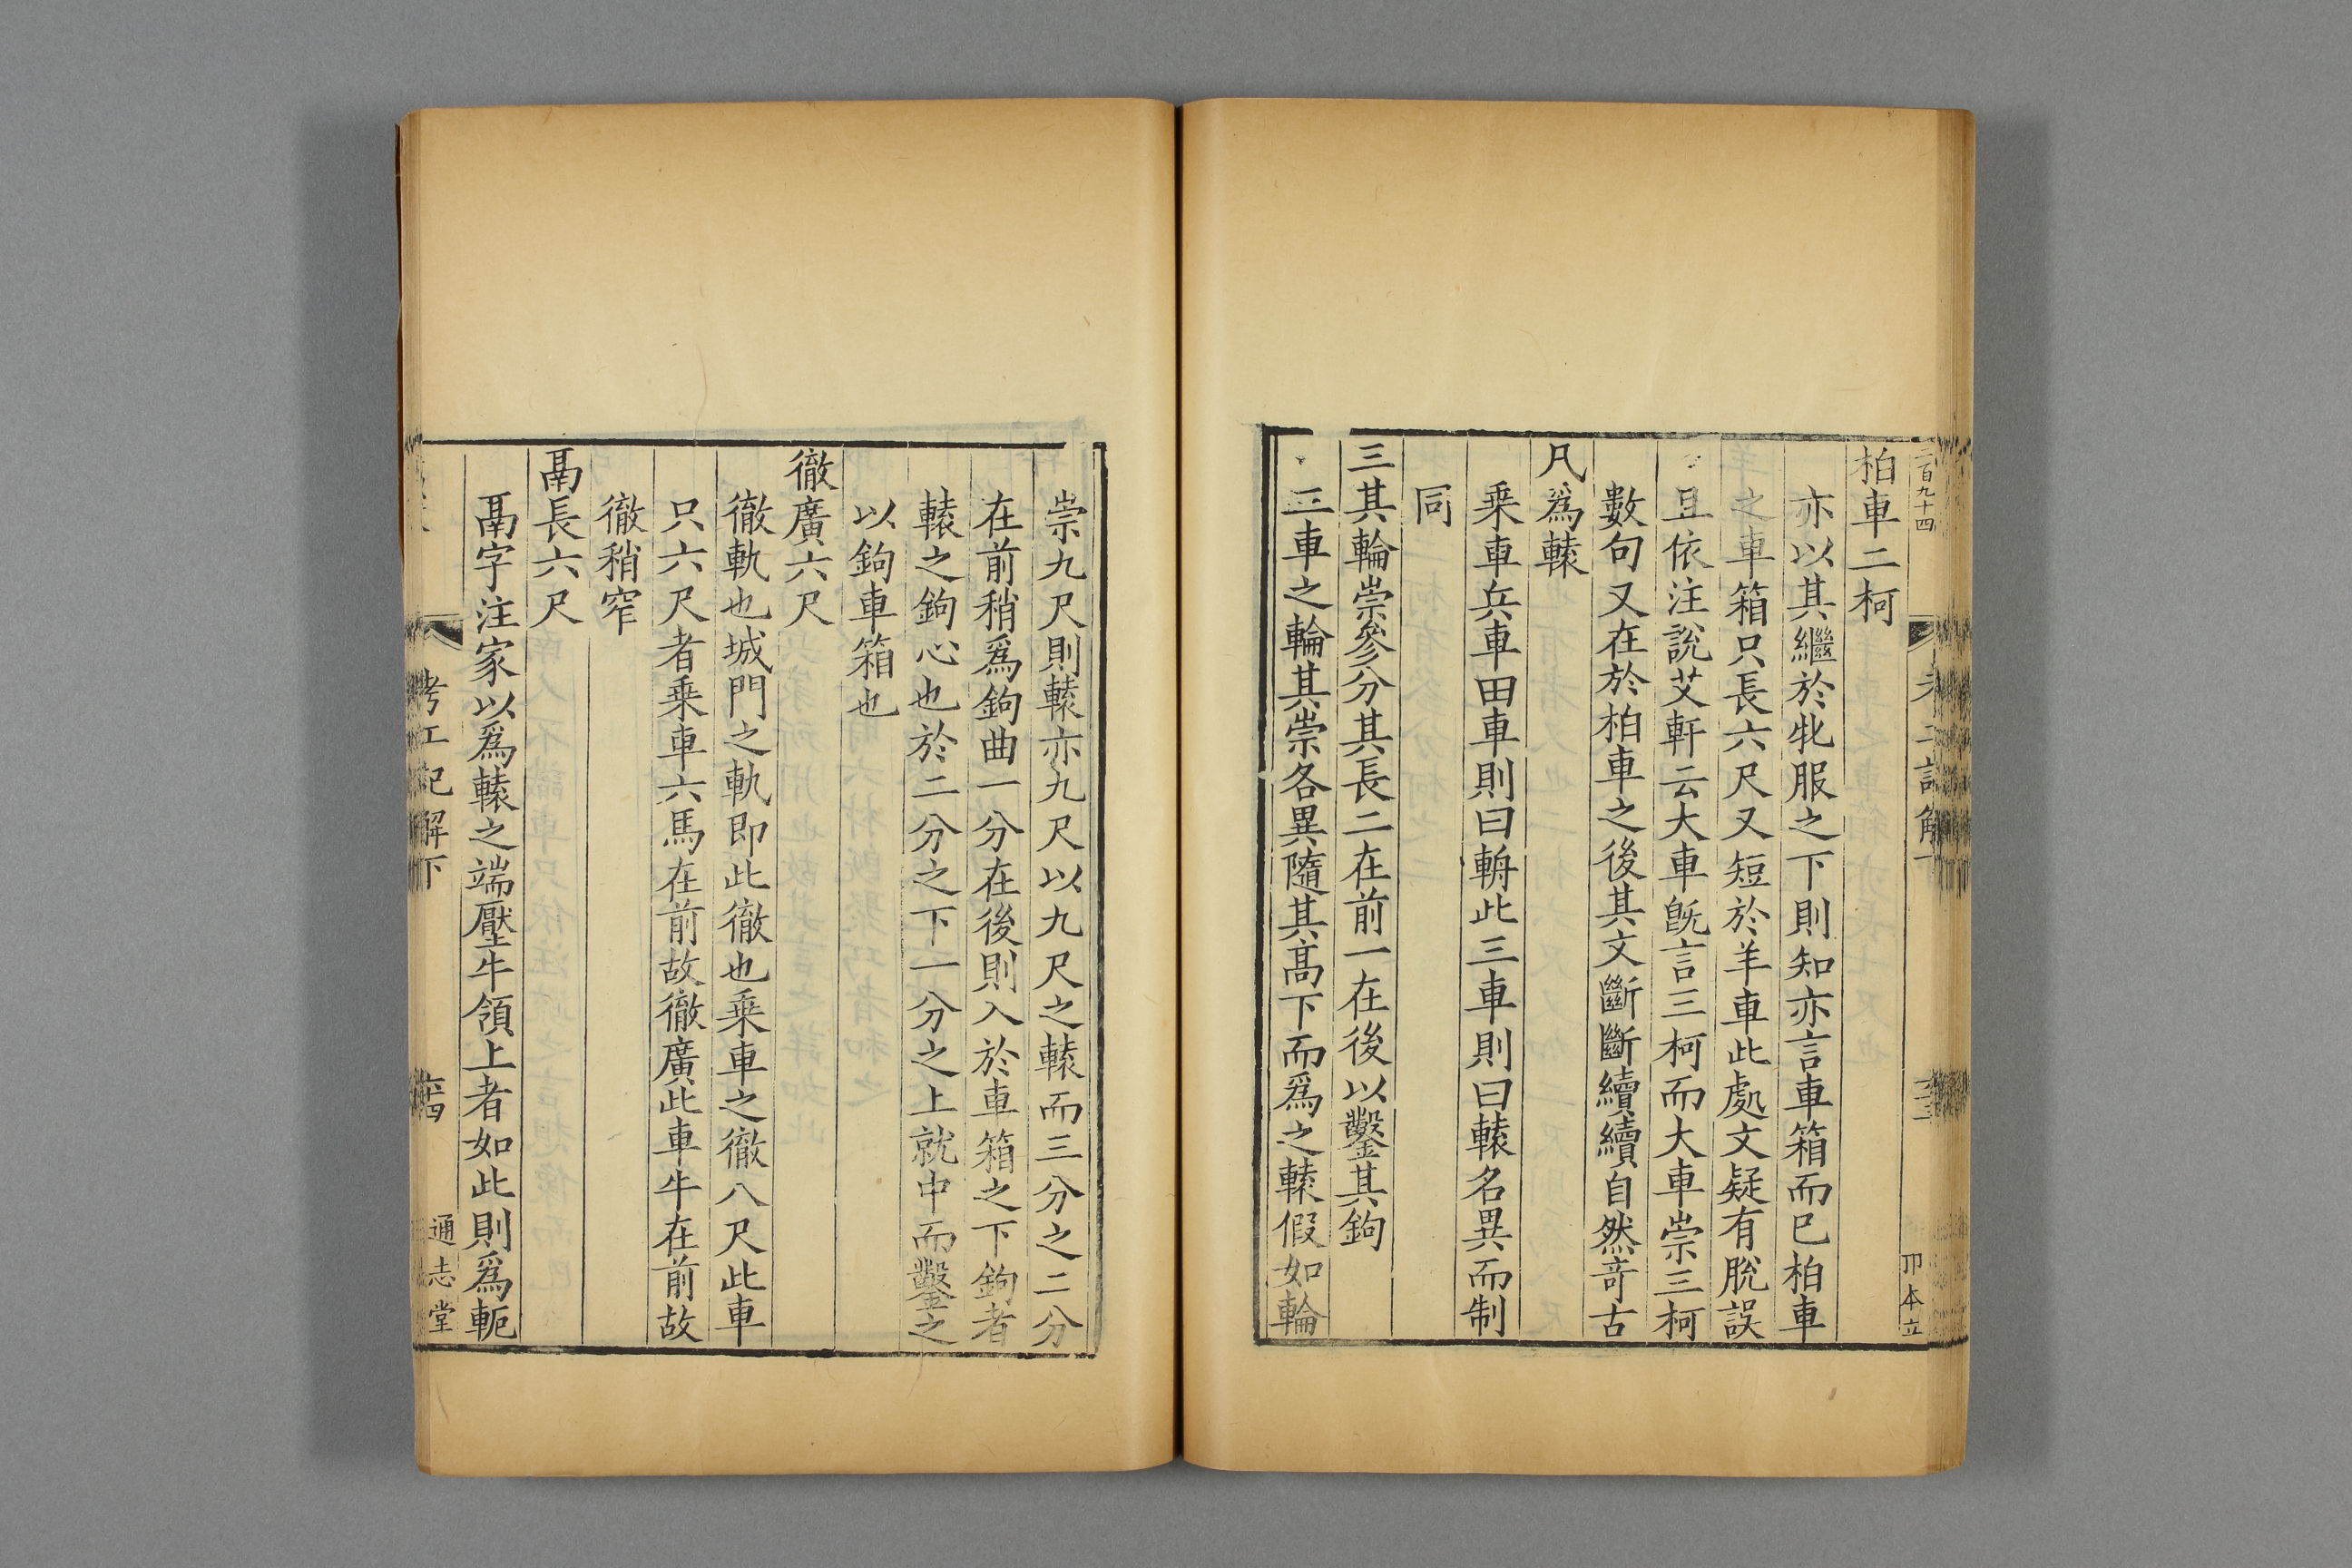 二百九十四
柏車二柯
亦以其繼於牝服之下則知亦言車箱而已柏車
之車箱只長六尺又短於羊車此處文疑有脫誤
且依注說艾軒云大車旣言三柯而大車崇三柯
數句又在於柏車之後其文斷斷續續自然竒古
凡爲轅
乗車兵車田車則曰輈此三車則曰轅名異而制
同
三其輪崇參分其長二在前一在後以鑿其鉤
三車之輪其崇各異隨其髙下而爲之轅假如輪
崇九尺則轅亦九尺以九尺之轅而三分之二分
在前稍爲鉤曲一分在後則入於車箱之下鉤者
轅之鉤心也於二分之下一分之上就中而鑿之
以鉤車箱也
徹廣六尺
徹軌也城門之軌即此徹也乗車之徹八尺此車
只六尺者乗車六馬在前故徹廣此車牛在前故
徹稍窄
鬲長六尺
鬲字注家以爲轅之端壓牛領上者如此則爲軛
考工記解下
通志堂